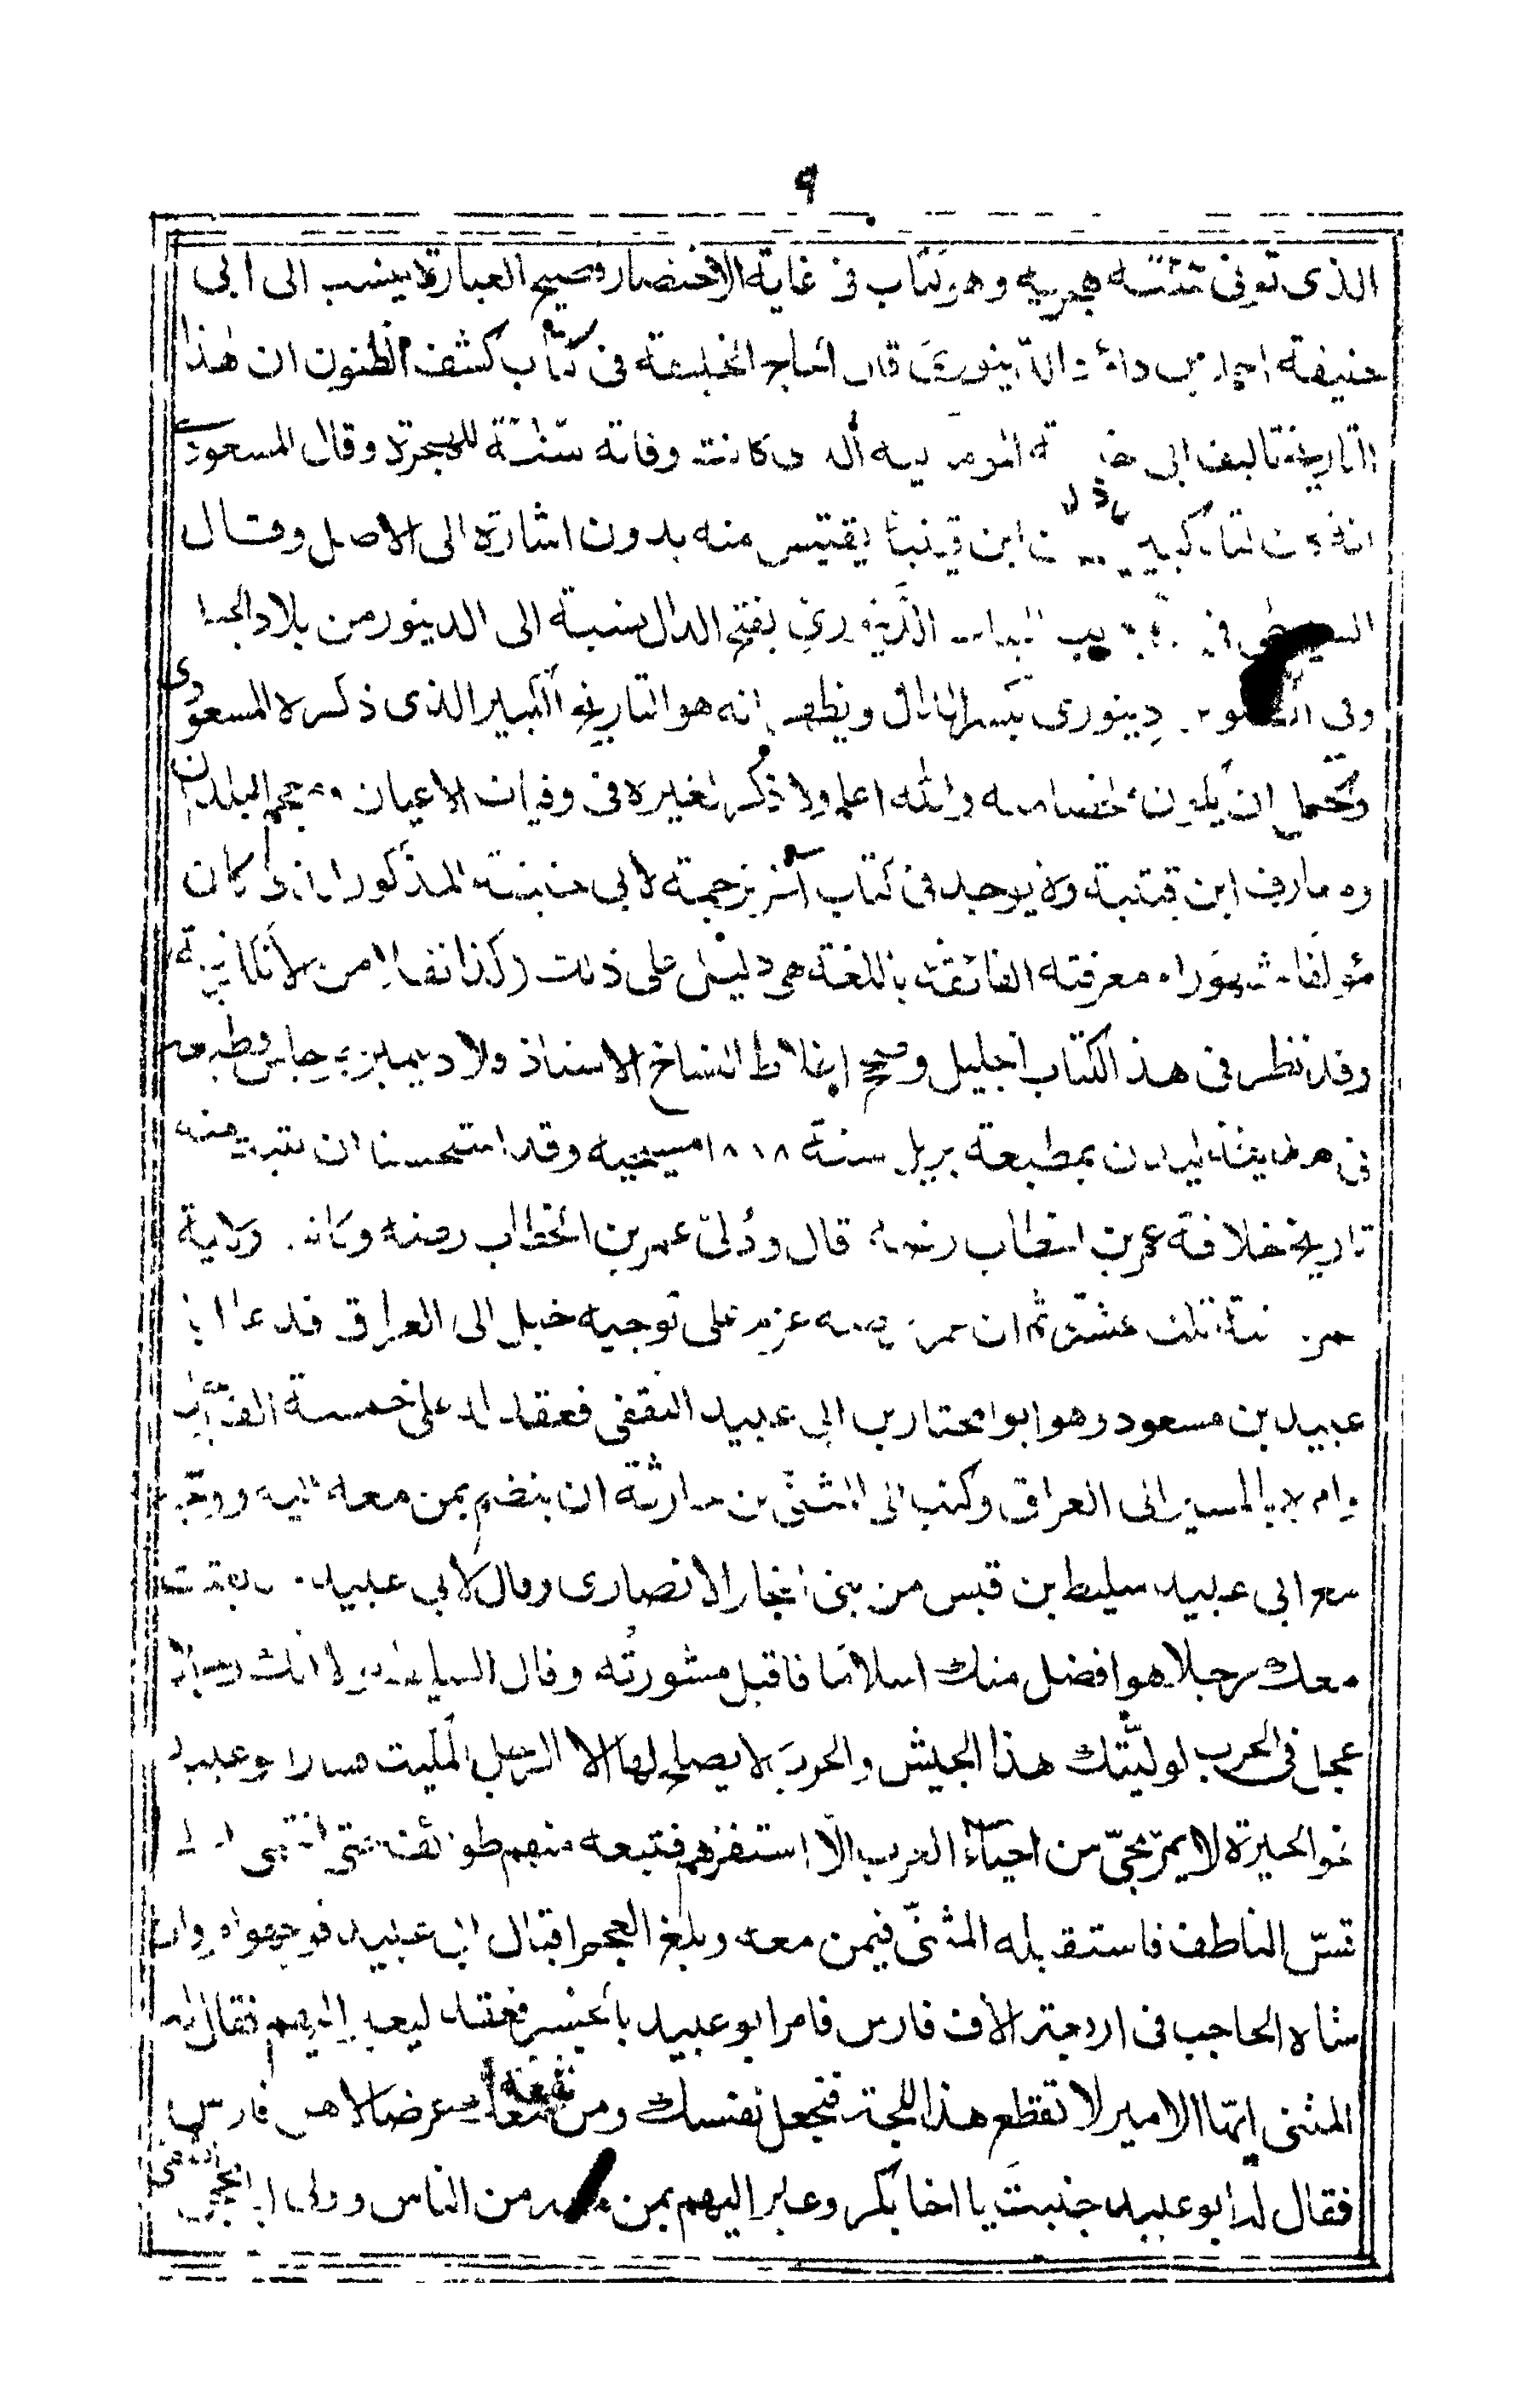 ٩
الذى توفى سنة هجريه وهو كتاب فى غاية الاختصار وفصيح العبارة ينسب الى ابى
حنيفة احمد بن داؤد الدّينورىّ قال الحاج الخليفة فى كتاب كشف الظنون ان هذا
التاريخ تاليف ابى كانت وفاته سنة للهجرة وقال المسعودى
ابن قتيبة يقتبس منه بدون اشارة الى الاصل وقال
السيوطى فى الدّينورى بفتح الدال نسبة الى الدينور من بلاد الجبل
وفى دِينورى بكسر الدال ويظهر انه هو التاريخ الكبير الذى ذكره المسعودى
ويحتمل ان يكون والله اعلم ولا ذكر لغيره فى وفيات الاعيان ومعجم البلدان
ومعارف ابن قتيبة ولا يوجد فى كتاب آخر ترجمة لابى حنيفة المذكور
معرفته الفائقة باللغة هى دليل على ذلك
وقد نظر فى هذا الكتاب الجليل وصحح اغلاط النساخ الاستاذ ولاديمير جرجاس وطبعه
فى مدينة ليدن بمطبعة بريل سنة ١٨٨٨ مسيحيه وقد استحسنا ان منه
تاريخ خلافة عمر بن الخطاب رضه قال ووُلىّ عمر بن الخطاب رضه وكانت ولاية
عمر سنة ثلث عشرة ثم ان عمر رضه عزم على توجيه خيل الى العراق فدعا ابا
عبيد بن مسعود وهو ابو المختار بن ابى عبيد الثقفى فعقد له على خمسة الف
وامره بالمسير الى العراق وكتب الى المثنّى بن حارثة ان ينضم بمن معه اليه ووجّه
مع ابى عبيد سليط بن قيس من بنى النجار الانصارى وقال لابى عبيد قد بعثت
معك رجلا هو افضل منك اسلاما فاقبل مشورتُه وقال لسليط لولا انك رجل
عجل فى الحرب لولّيتك هذا الجيش والحربَ لا يصلح لها الا الرجل المكيث فسار ابو عبيد
نحو الحيرة لا يمرّ بحىّ من احياء العرب الّا استفزهم فتبعه منهم طوائف حتى انتهى الى
قسّ الناطف فاستقبله المثنّى فيمن معه وبلغ العجم اقبال ابى عبيد فوجهوا
شاه الحاجب فى اربعة الآف فارس فامر ابو عبيد بالجسر فعقد ليعبر اليهم فقال له
المثنى ايّها الامير لا تقطع هذه اللجة فتجعل نفسك ومن معك غرضا لاهل فارس
فقال له ابو عبيد جبنتَ يا اخا بكر وعبر اليهم بمن معه من الناس وولى ابا محجن الثقفى